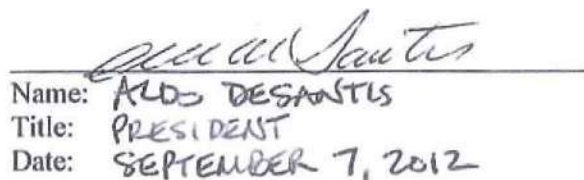 Name: ALDO DESANTIS
Title: PRESIDENT
Date: SEPTEMBER 7, 2012